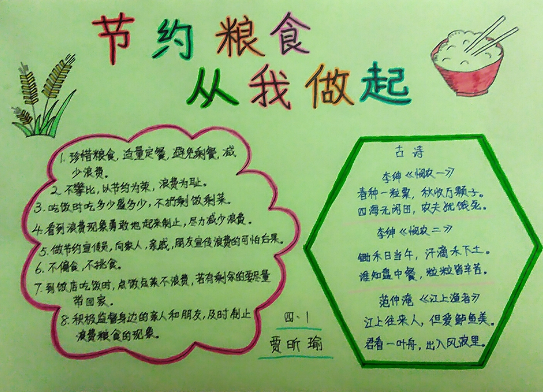 节约粮食
从我做起
1. 珍惜粮食，适量定餐，避免剩餐，减
少浪费。
2. 不攀比，以节约为荣，浪费为耻。
3. 吃饭时吃多少盛多少，不扔剩饭剩菜。
4. 看到浪费现象勇敢地起来制止，尽力减少浪费。
5. 做节约宣传员，向家人，亲戚，朋友宣传浪费的可怕后果。
6. 不偏食，不挑食。
7. 到饭店吃饭时，点饭点菜不浪费，若有剩余的要尽量
带回家。
8. 积极监督身边的亲人和朋友，及时制止
浪费粮食的现象。
四.1
贾昕瑜
古诗
李绅《悯农一》
春种一粒粟，秋收万颗子。
四海无闲田，农夫犹饿死。
李绅《悯农二》
锄禾日当午，汗滴禾下土。
谁知盘中餐，粒粒皆辛苦。
范仲淹《江上渔者》
江上往来人，但爱鲈鱼美。
君看一叶舟，出入风波里。